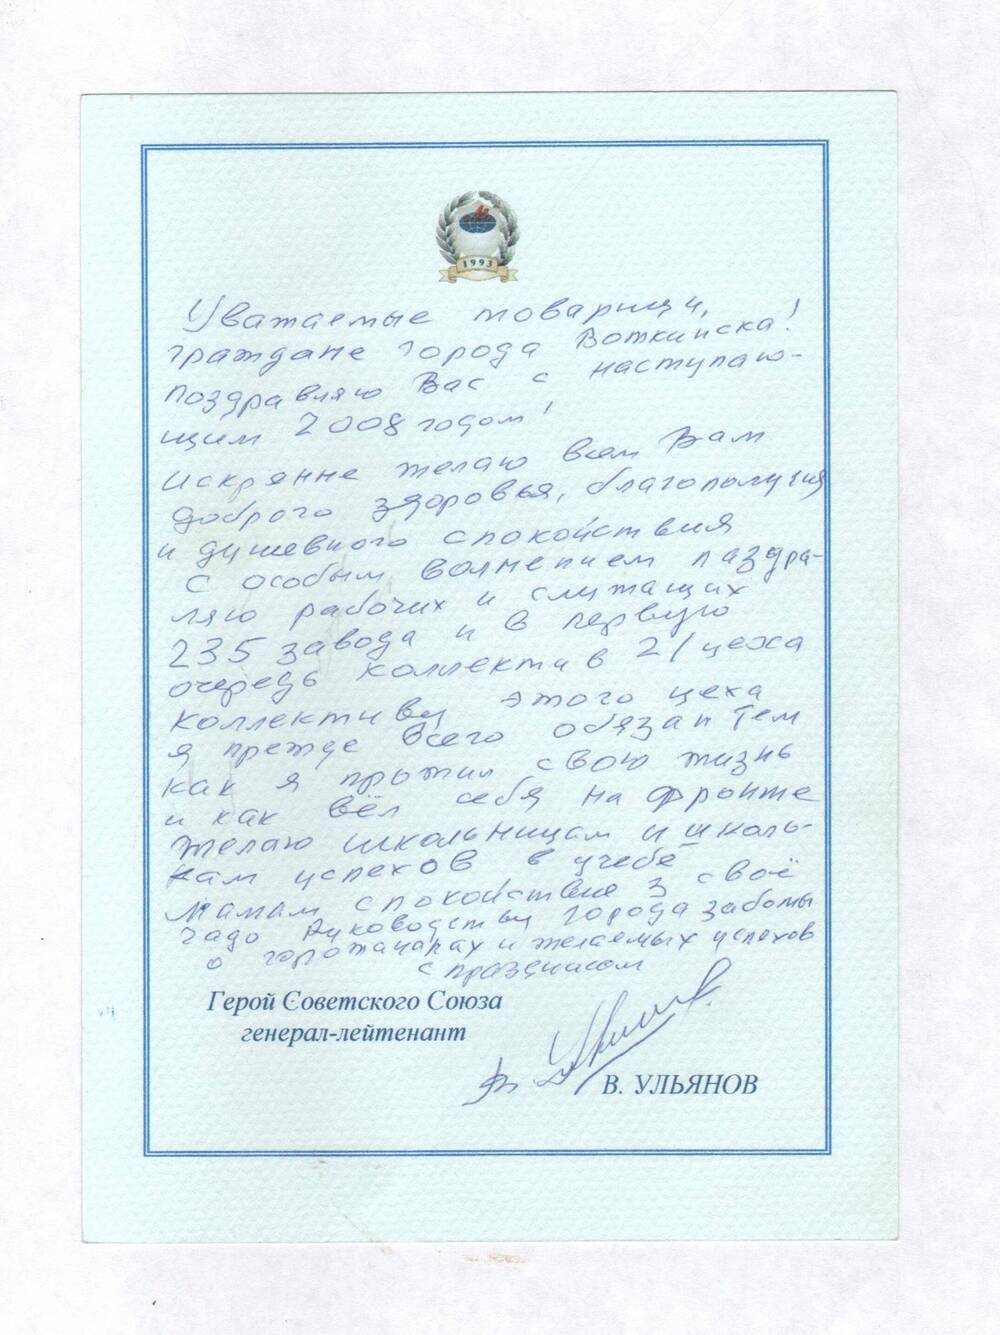 1993
Уважаемые товарищи,
граждане города Воткинска!
поздравляю Вас с наступаю-
щим 2008 годом!
искренне желаю всем Вам
доброго здоровья, благополучия
и душевного спокойствия
с особым волнением паздра-
ляю рабочих и служащих
235 завода и в первую
очередь коллектив 21 цеха
коллективу этого цеха
я прежде всего обязан тем
как я прожил свою жизнь
и как вёл себя на фронте
желаю школьницам и школь-
кам успехов в учебе
мамам спокойствия з своё
чадо Руководству города заботы
о горожанах и желаемых успехов
с праздником
Герой Советского Союза
генерал-лейтенант
В. УЛЬЯНОВ